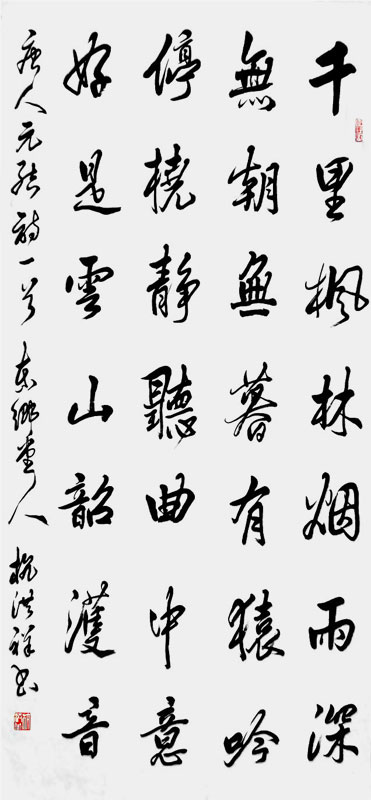 千里楓林烟雨深
無朝無暮有猿吟
停橈静聽曲中意
好是雲山韶濩音
唐人元结诗一首 東鄉 人 洪祥书